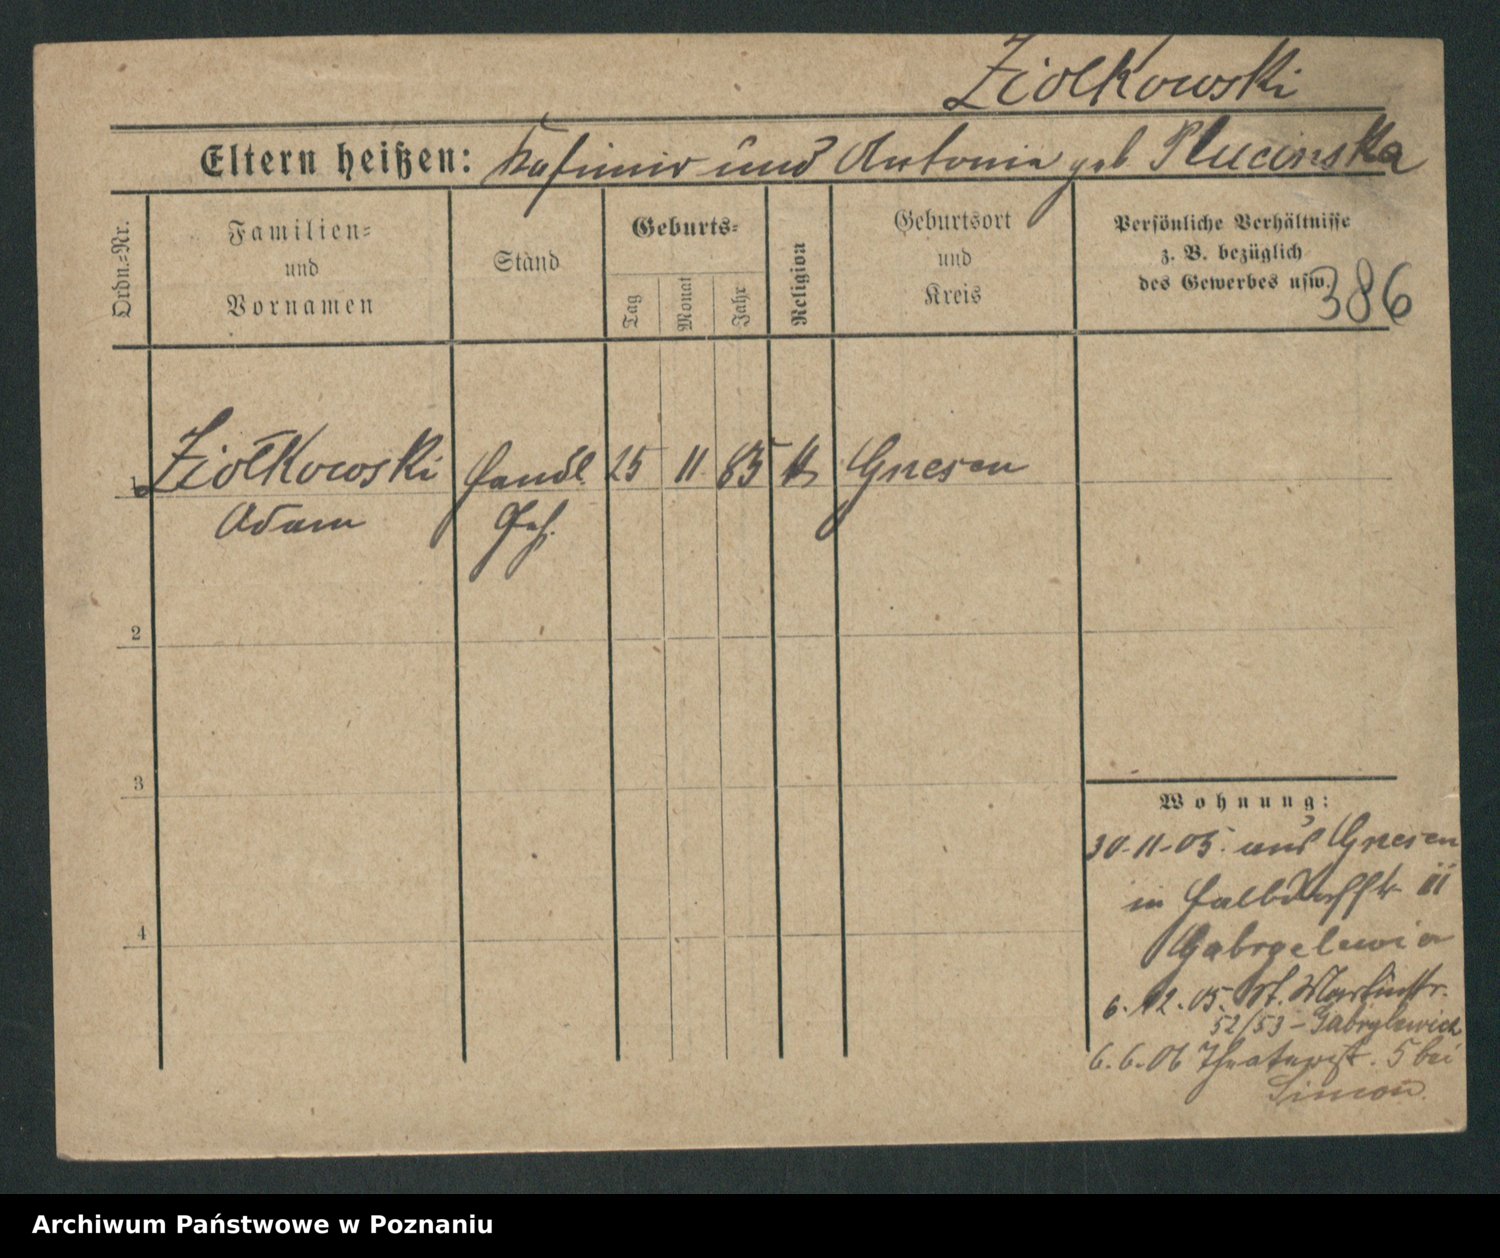 Ziolkowski
Eltern heißen: Kasimir und Antonia geb Plucinska
Ordn.-Nr.
Familien-
und
Vornamen
Stand
Geburts-
Tag
Monat
Jahr
Religion
Geburtsort
und
Kreis
Persönliche Verhältnisse
z. B. bezüglich
des Gewerbes usw.
386
1 Ziołkowski Handl. 25 11 85 k Gnesen
Adam Geh.
2
3
4
Wohnung:
30-11-05. aus Gnesen
in Halbdorfstr
6. 12. 05. St. Martinstr.
52/53 - Gabrylewicz
6. 6. 06 Theaterstr. 5 bei
Simon
Archiwum Państwowe w Poznaniu